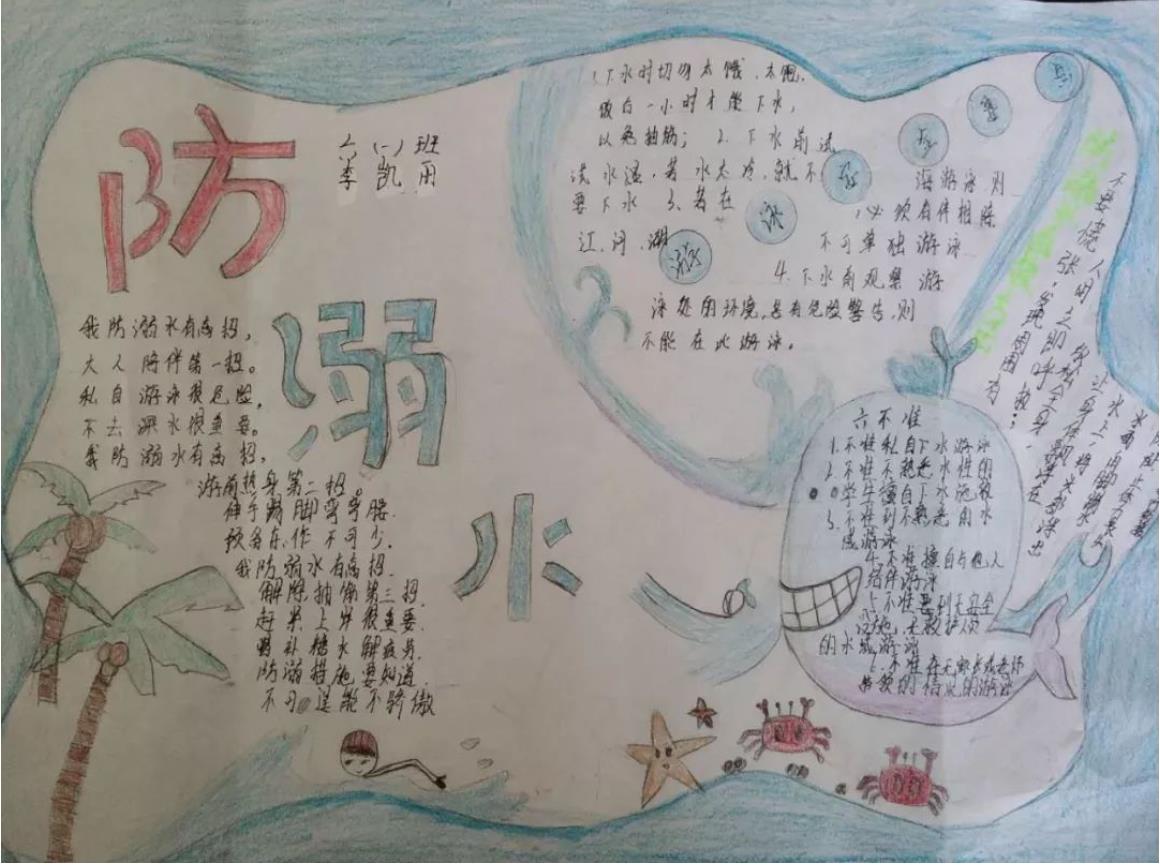 防
溺
水
六(一)班
李凯用
我防溺水有高招,
大人陪伴第一招。
私自游泳很危险,
不去深水很重要。
我防溺水有高招,
游前热身第二招。
伸手踢脚弯弯腰.
预备动作不可少.
我防溺水有高招.
解除抽筋第三招
赶紧上岸很重要.
补糖水解疲劳.
防溺措施要知道.
不可逞能不骄傲
1.下水时切勿太饿、太饱.
饭后一小时才能下水,
以免抽筋; 2.下水前试
试水温,若水太冷,就不
要下水 3、若在
江、河、湖
海游泳则
,必须有伴相陪
不可单独游泳
4.下水前观察游
泳处的环境,若有危险警告,则
不能在此游泳。
游
泳
六不准
1.不准私自下水游泳
2.不准不熟悉水性的
学生擅自下水施救
3.不准到不熟悉的水
域游泳
4.不准擅自与他人
结伴游泳
5.不准到无安全
设施,无救护人员
的水域游泳
6.不准在无家长或老师
带领的情况的游泳
不要慌张,发现周围有
人时立即呼救:
放松全身,